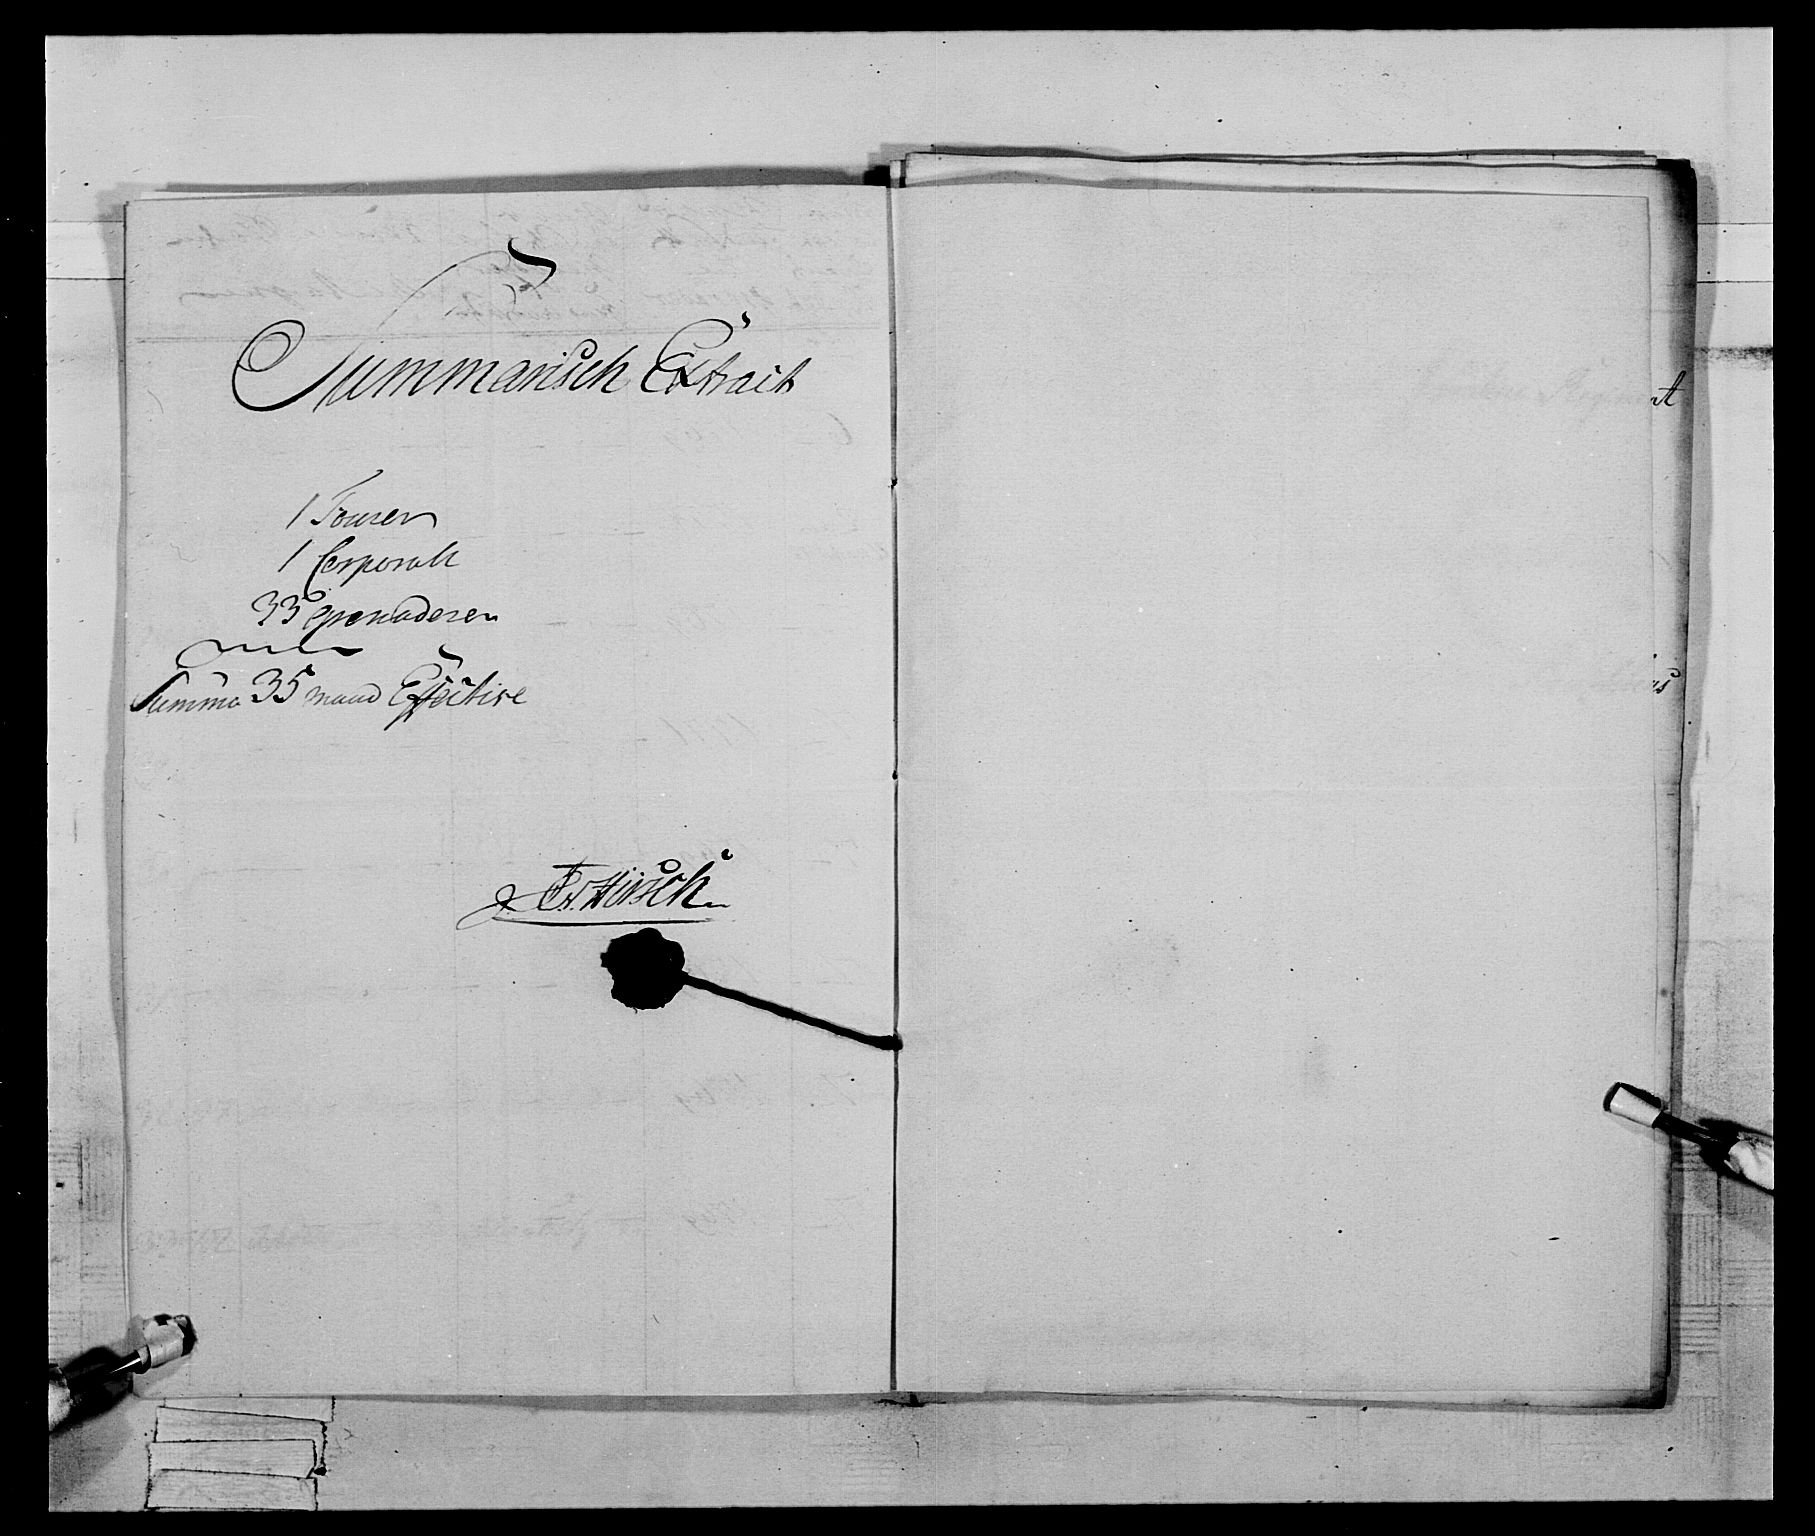 Summarisch Extract
1 Fourier
1 Corporall
33 Grenaderer
Summa 35 mand Effective
Hirsch